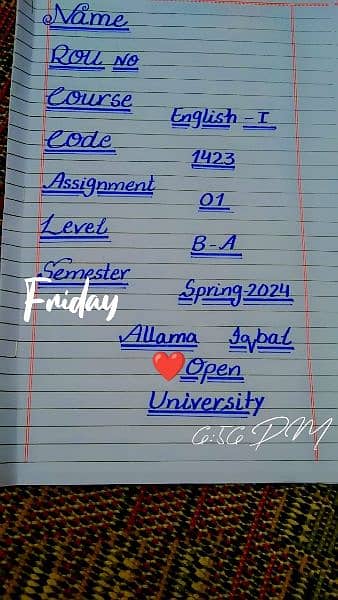 Name
Roll No
Course
English - I
Code
1423
Assignment
01
Level
B-A
Semester
Friday
Spring-2024
Allama Iqbal
❤️Open
University
6:56 PM